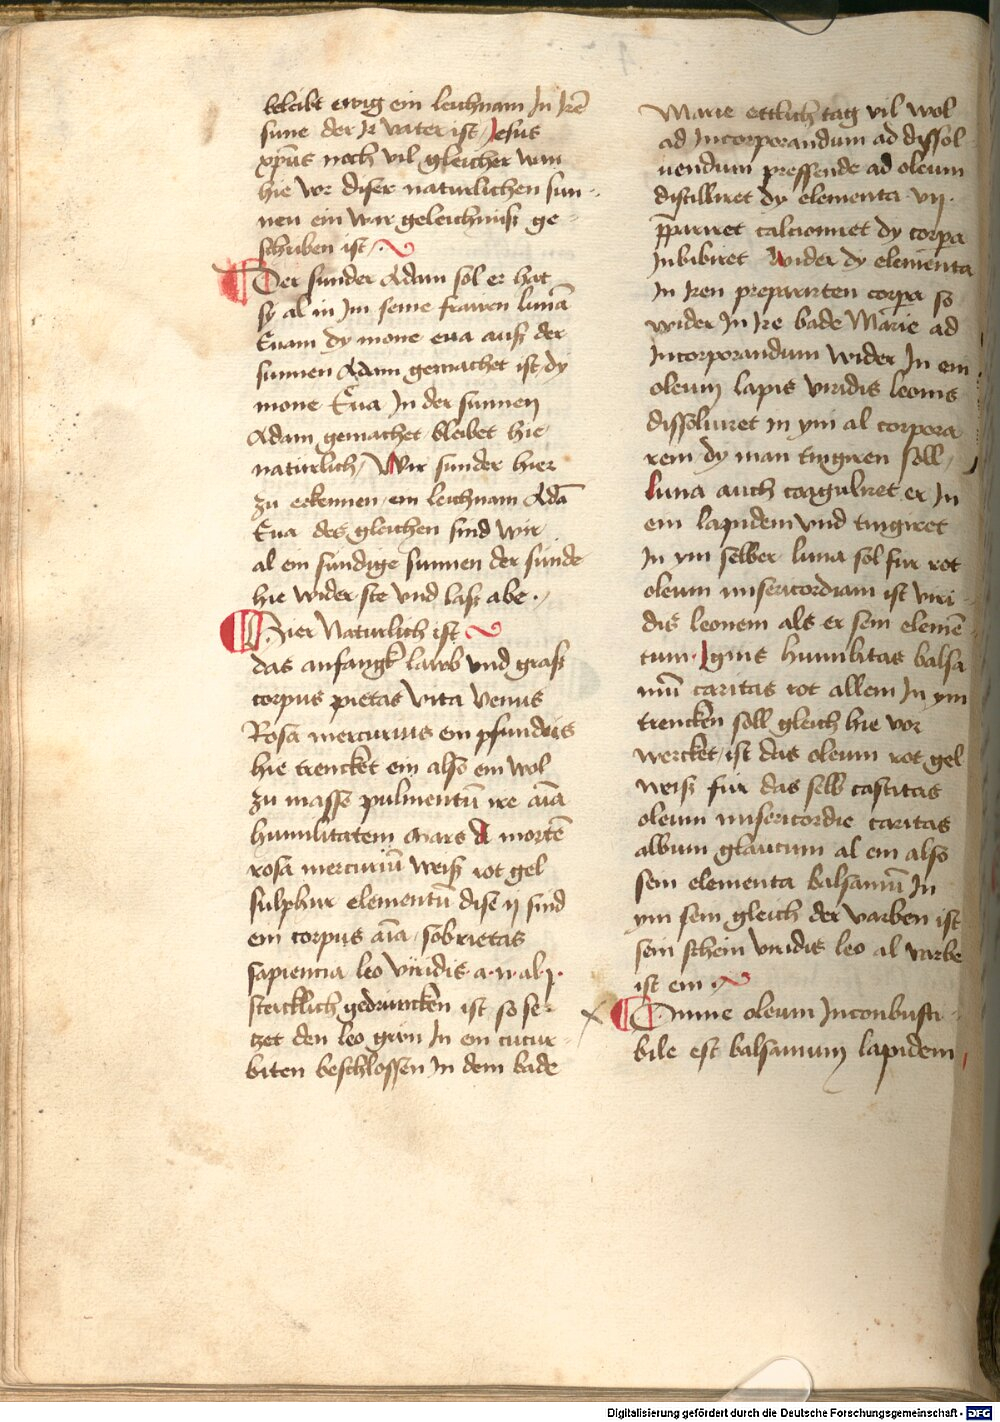 bleibt ewig ein leichnam In Irẽ
sune der Ir vater ist Jesus
xp̃us noch vil gleicher wan
hie vor diser naturlichen sun-
nen ein war geleichnuß ge-
schriben ist
Der sunder Adam sol er hat
sy al in Im seine frawen lunã
Euam dy mone eua auß der
sunnen Adam gemachet ist dy
mone Eua In der sunnen
Adam gemachet bleibet hie
naturlich Wir sunder hier
zu erkennen ein leichnam Adã
Eua des gleichen sind wir
al ein sundige sunnen der sunde
hie wider ste vnd laß abe
Hier Naturlich ist
das anfangk lawb vnd graß
corpus pietas vita venus
Rosa mercurius ein pfunders
hie trencket ein also ein wol
zu masse pulmentũ ire aĩa
humilitatem Mars mortẽ
rosa mercuriũ weiß rot gel
sulphur elementũ dise ij sind
ein corpus aĩa sobrietas
sapiencia leo viridis
stetklich gedruncken ist so se-
tzet den leo grun In ein cucur-
biten beschlossen In dem bade
Marie ettlich tag vil wol
ad Incorporandum ad dissol
uendum pressende ad oleum
distilliret dy elementa vij.
p̃pariret calcioniret dy corpa
Inbibiret wider dy elementa
In Iren preparirten corpa so
wider In Ire bade Marie ad
Incorporandum wider In ein
oleum lapis viridis leonis
dissoluiret in ym al corpora
rein dy man tingiren soll
luna auch coaguliret er In
ein lapidem vnd tingiret
In ym selber luna sol fur rot
oleum misericordiam ist viri
dis leonem als er sein elemẽ
tum Ignis humilitas balsa
mũ caritas rot allein In ym
trencken soll gleich hie vor
wercket ist das oleum rot gel
weiß fur das selb castitas
oleum misericordie caritas
album glaucum al ein also
sein elementa balsamũ In
ym sein gleich der varben ist
sein schein viridis leo al varbe
ist ein
Omne oleum Inconbusti-
bile est balsamum lapidem
Digitalisierung gefördert durch die Deutsche Forschungsgemeinschaft - DFG